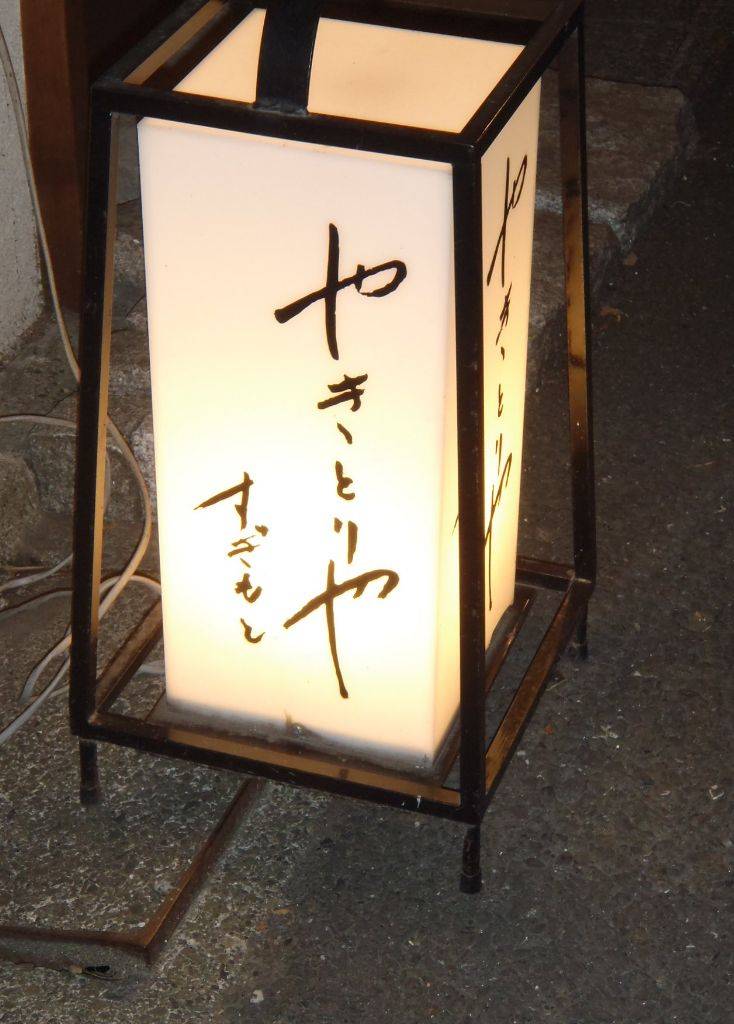 やきとりや
すぎもと
やきとりや